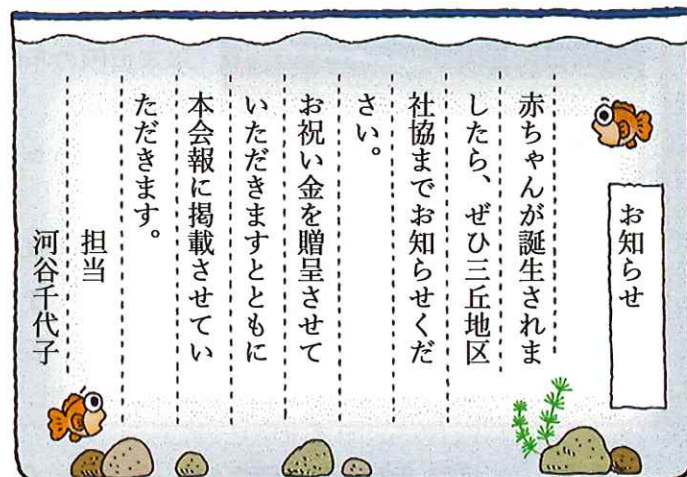 お知らせ
赤ちゃんが誕生されま
したら、ぜひ三丘地区
社協までお知らせくだ
さい。
お祝い金を贈呈させて
いただきますとともに
本会報に掲載させてい
ただきます。
担当
河谷千代子